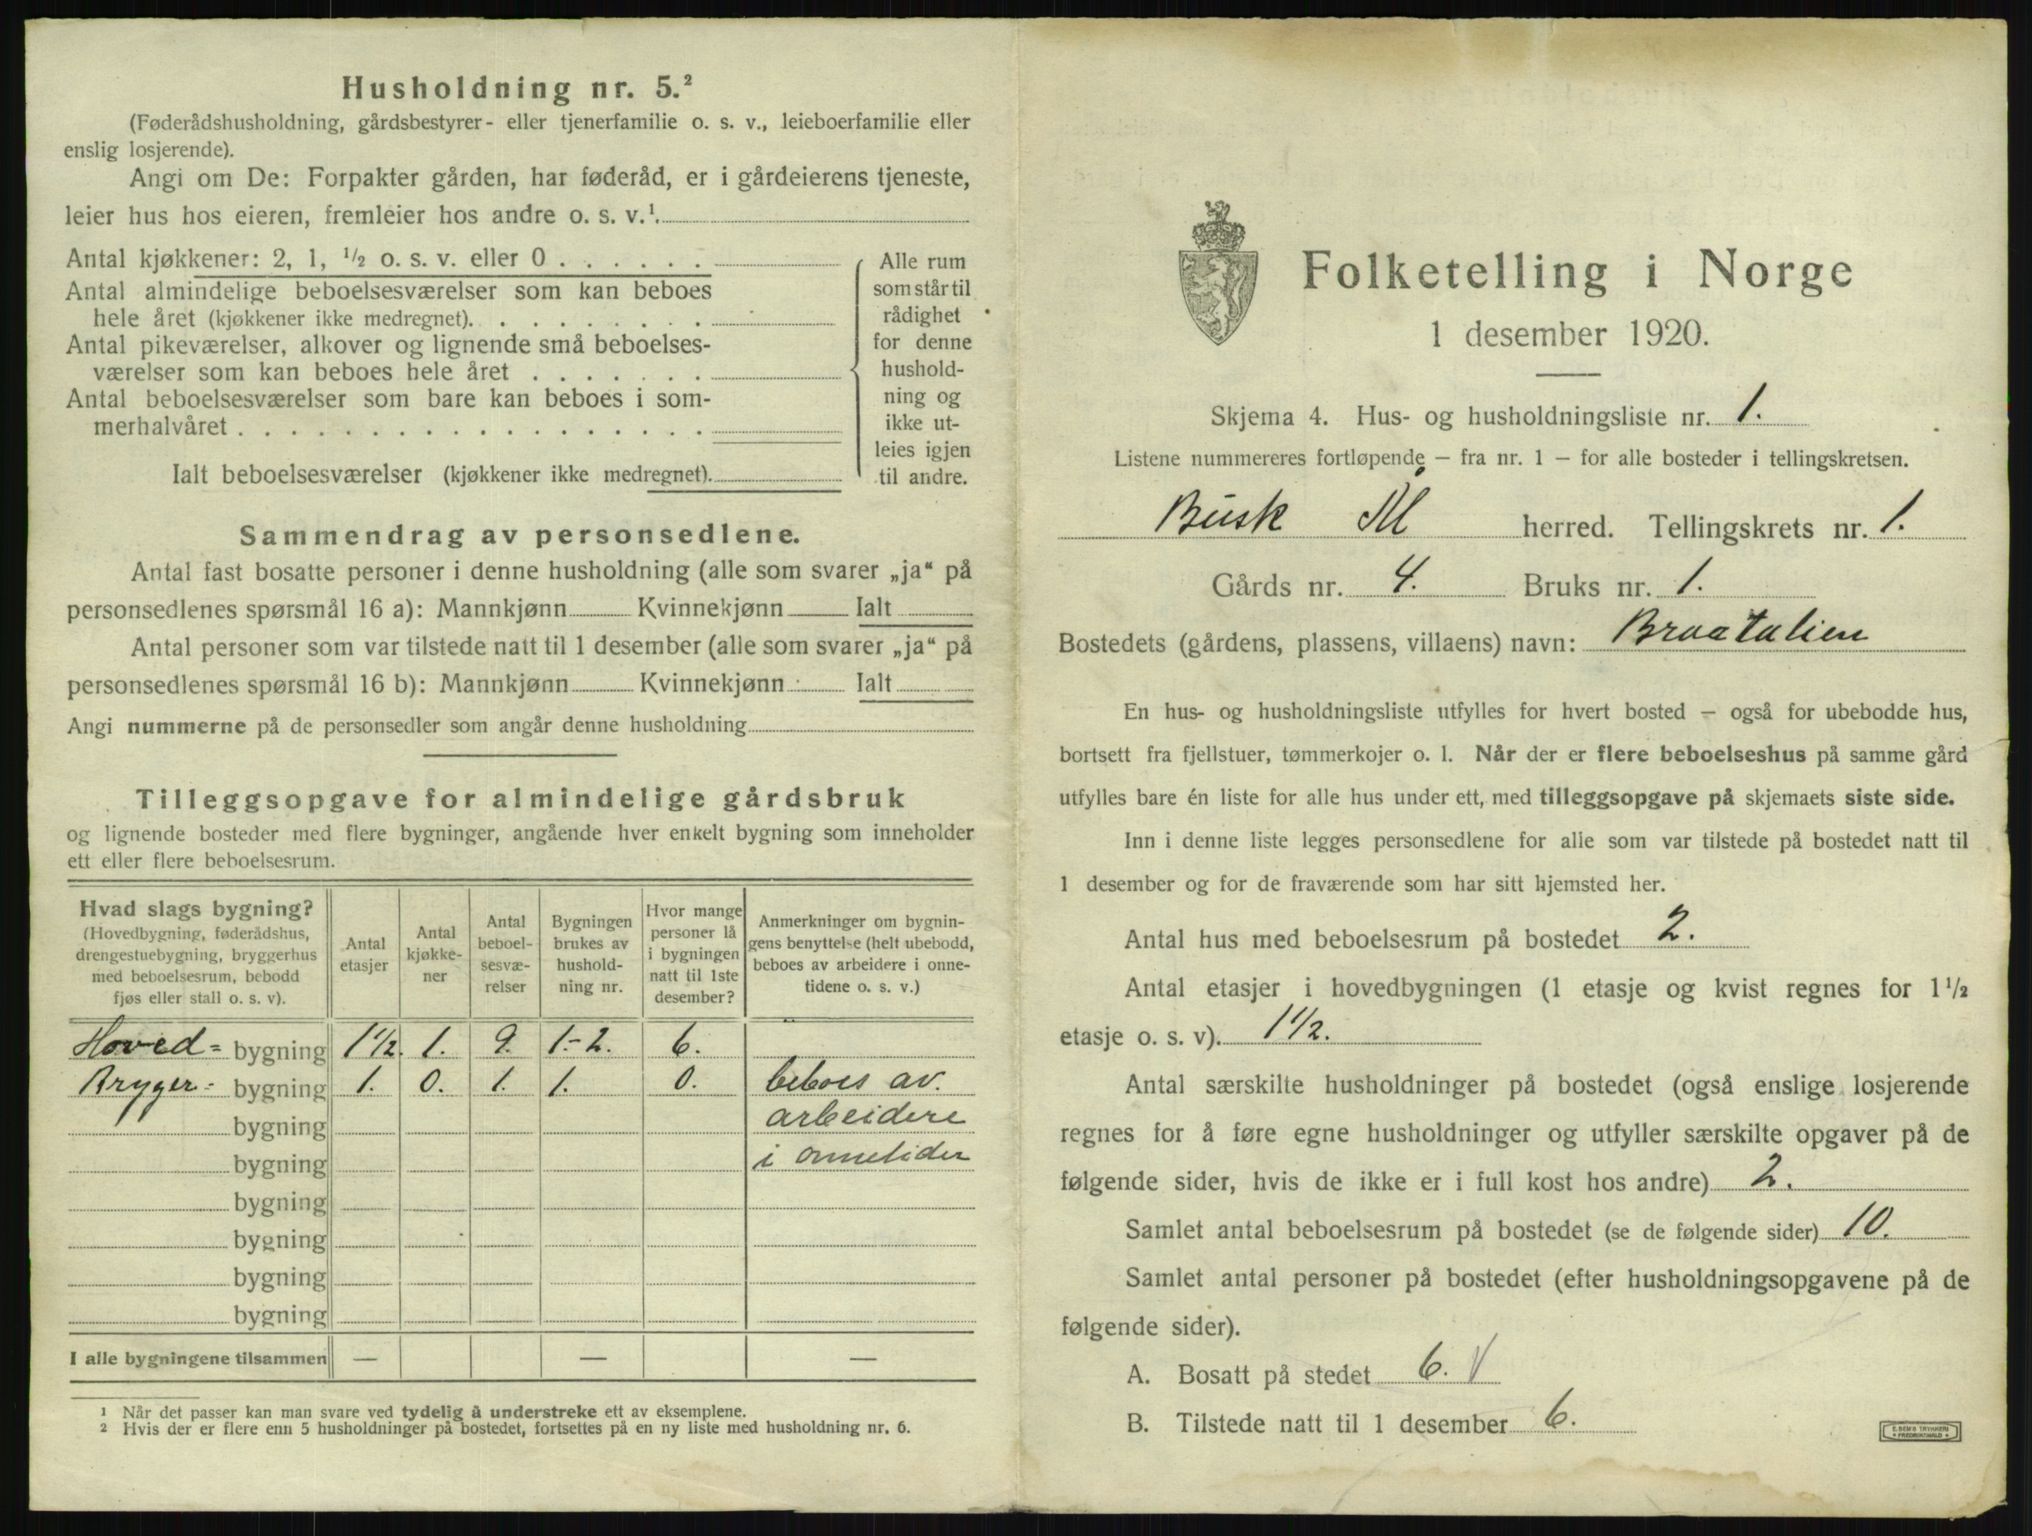 Husholdning nr. 5.²
(Føderådshusholdning, gårdsbestyrer- eller tjenerfamilie o. s. v., leieboerfamilie eller
enslig losjerende).
Angi om De: Forpakter gården, har føderåd, er i gårdeierens tjeneste,
leier hus hos eieren, fremleier hos andre o. s. v.¹
Antal kjøkkener: 2, 1, ½ o. s. v. eller 0 . . . . . .
Antal almindelige beboelsesværelser som kan beboes
hele året (kjøkkener ikke medregnet). . . . . . . . .
Antal pikeværelser, alkover og lignende små beboelses-
værelser som kan beboes hele året . . . . . . .
Antal beboelsesværelser som bare kan beboes i som-
merhalvåret . . . . . . . . . . . . . . . . . .
Ialt beboelsesværelser (kjøkkener ikke medregnet).
Alle rum
som står til
rådighet
for denne
hushold-
ning og
ikke ut-
leies igjen
til andre.
Sammendrag av personsedlene.
Antal fast bosatte personer i denne husholdning (alle som svarer „ja“ på
personsedlenes spørsmål 16 a): Mannkjønn Kvinnekjønn Ialt
Antal personer som var tilstede natt til 1 desember (alle som svarer „ja“ på
personsedlenes spørsmål 16 b): Mannkjønn Kvinnekjønn Ialt
Angi nummerne på de personsedler som angår denne husholdning
Tilleggsopgave for almindelige gårdsbruk
og lignende bosteder med flere bygninger, angående hver enkelt bygning som inneholder
ett eller flere beboelsesrum.
Hvad slags bygning?
(Hovedbygning, føderådshus,
drengestuebygning, bryggerhus
med beboelsesrum, bebodd
fjøs eller stall o. s. v).
Antal
etasjer
Antal
kjøkke-
ner
Antal
beboel-
sesvæ-
relser
Bygningen
brukes av
hushold-
ning nr.
Hvor mange
personer lå
i bygningen
natt til 1ste
desember?
Anmerkninger om bygnin-
gens benyttelse (helt ubebodd,
beboes av arbeidere i onne-
tidene o. s. v.)
Hoved= bygning 1½. 1. 9. 1.-2. 6.
Bryger= bygning 1. 0. 1. 1. 0. beboes av.
bygning arbeidere
bygning i onnetider
bygning
bygning
bygning
bygning
I alle bygningene tilsammen — — —
¹ Når det passer kan man svare ved tydelig å understreke ett av eksemplene.
² Hvis der er flere enn 5 husholdninger på bostedet, fortsettes på en ny liste med husholdning nr. 6.
Folketelling i Norge
1 desember 1920.
Skjema 4. Hus- og husholdningsliste nr. 1.
Listene nummereres fortløpende — fra nr. 1 — for alle bosteder i tellingskretsen.
Busk Ål herred. Tellingskrets nr. 1.
Gårds nr. 4. Bruks nr. 1.
Bostedets (gårdens, plassens, villaens) navn: Braatalien
En hus- og husholdningsliste utfylles for hvert bosted — også for ubebodde hus,
bortsett fra fjellstuer, tømmerkojer o. l. Når der er flere beboelseshus på samme gård
utfylles bare én liste for alle hus under ett, med tilleggsopgave på skjemaets siste side.
Inn i denne liste legges personsedlene for alle som var tilstede på bostedet natt til
1 desember og for de fraværende som har sitt hjemsted her.
Antal hus med beboelsesrum på bostedet 2.
Antal etasjer i hovedbygningen (1 etasje og kvist regnes for 1½
etasje o. s. v). 1½.
Antal særskilte husholdninger på bostedet (også enslige losjerende
regnes for å føre egne husholdninger og utfyller særskilte opgaver på de
følgende sider, hvis de ikke er i full kost hos andre) 2.
Samlet antal beboelsesrum på bostedet (se de følgende sider) 10.
Samlet antal personer på bostedet (efter husholdningsopgavene på de
følgende sider).
A. Bosatt på stedet 6. V
B. Tilstede natt til 1 desember 6.